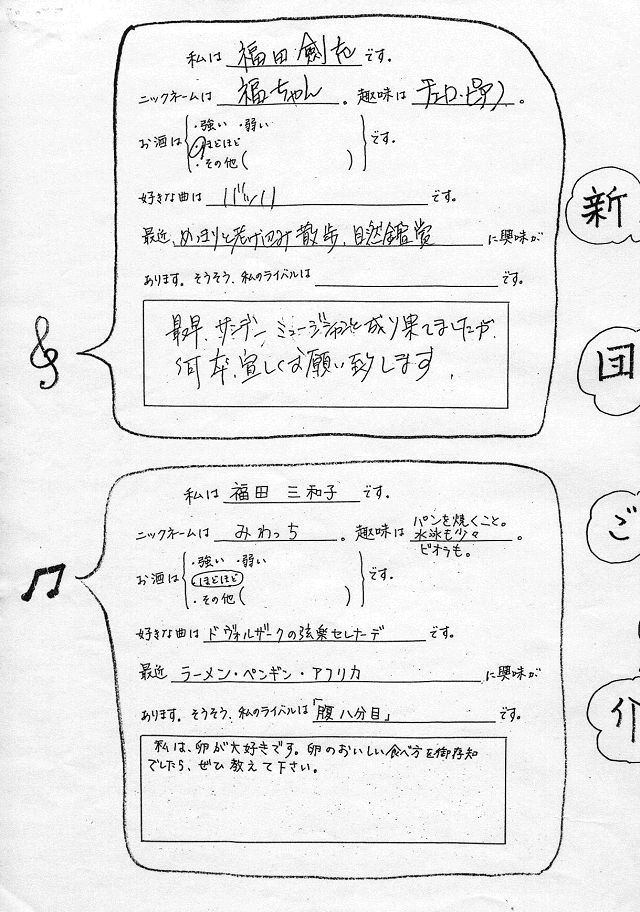 私は 福田 です。
ニックネームは 福ちゃん 。趣味は チェロ・ピアノ 。
・強い ・弱い
お酒は ・ほどほど です。
・その他( )
好きな曲は バッハ です。
最近、めっきりと老け込み散歩、自然鑑賞 に興味が
あります。そうそう、私のライバルは です。
最早、サンデーミュージシャンと成り果てましたが、
何卒、宜しくお願い致します。
私は 福田 三和子 です。
パンを焼くこと。
ニックネームは みわっち 。趣味は 水泳も少々 。
ビオラも。
・強い ・弱い
お酒は ・ほどほど です。
・その他( )
好きな曲は ドヴォルザークの弦楽セレナーデ です。
最近 ラーメン・ペンギン・アフリカ に興味が
あります。そうそう、私のライバルは「腹八分目」 です。
私は、卵が大好きです。卵のおいしい食べ方を御存知
でしたら、ぜひ教えて下さい。
新
団
ご
介